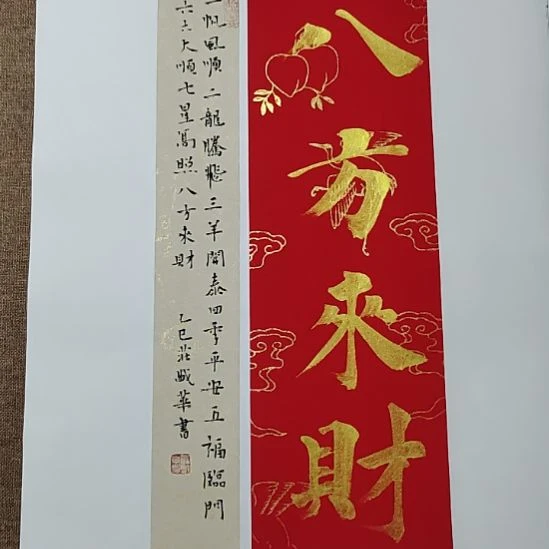 八方來財
一帆風順二龍騰飛三羊開泰四季平安五福臨門
六六大順七星高照八方來財
乙巳莊晠華書